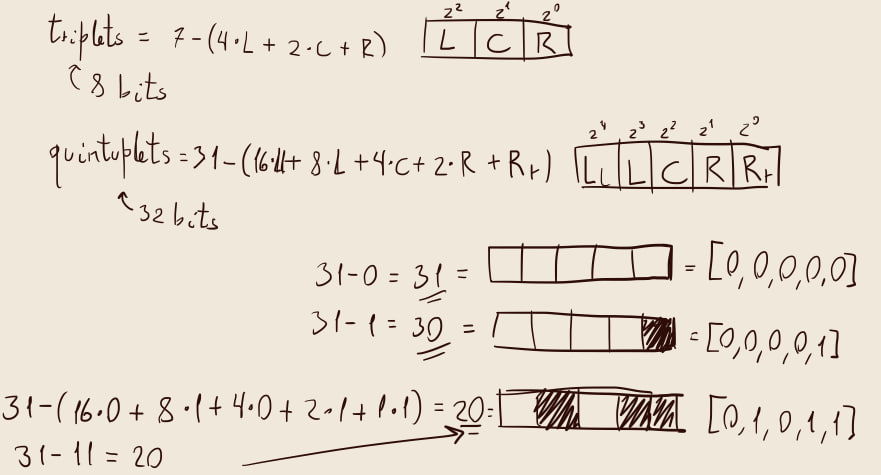 triplets = 7-(4·L + 2·C + R)
2² 2¹ 2⁰
L C R
8 bits
quintuplets = 31-(16·LL + 8·L + 4·C + 2·R + Rr)
2⁴ 2³ 2² 2¹ 2⁰
LL L C R Rr
32 bits
31-0 = 31 = = [0,0,0,0,0]
31-1 = 30 = = [0,0,0,0,1]
31-(16·0 + 8·1 + 4·0 + 2·1 + 1·1) = 20 = [0,1,0,1,1]
31-11 = 20